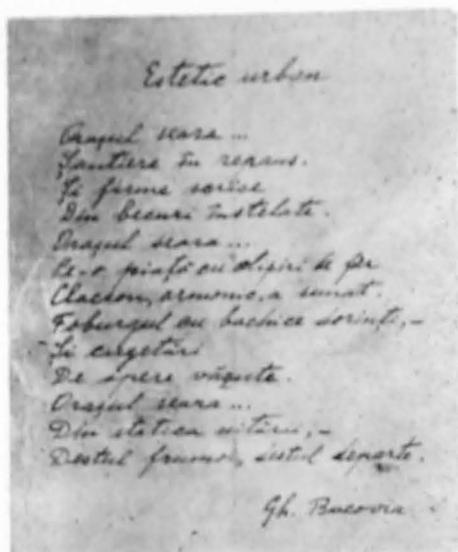 Estetic urban
Orașul seara...
Șantiere în repaus.
Și firme scrise
Din becuri înstelate.
Orașul seara...
Pe-o piață cu clipiri de fer
Clacson, armonic, a sunat.
Foburgul cu bachice dorinți,-
Și cugetări
De opere văzute.
Orașul seara...
Din statica uitării,-
Destul frumos, destul departe.
Gh. Bacovia